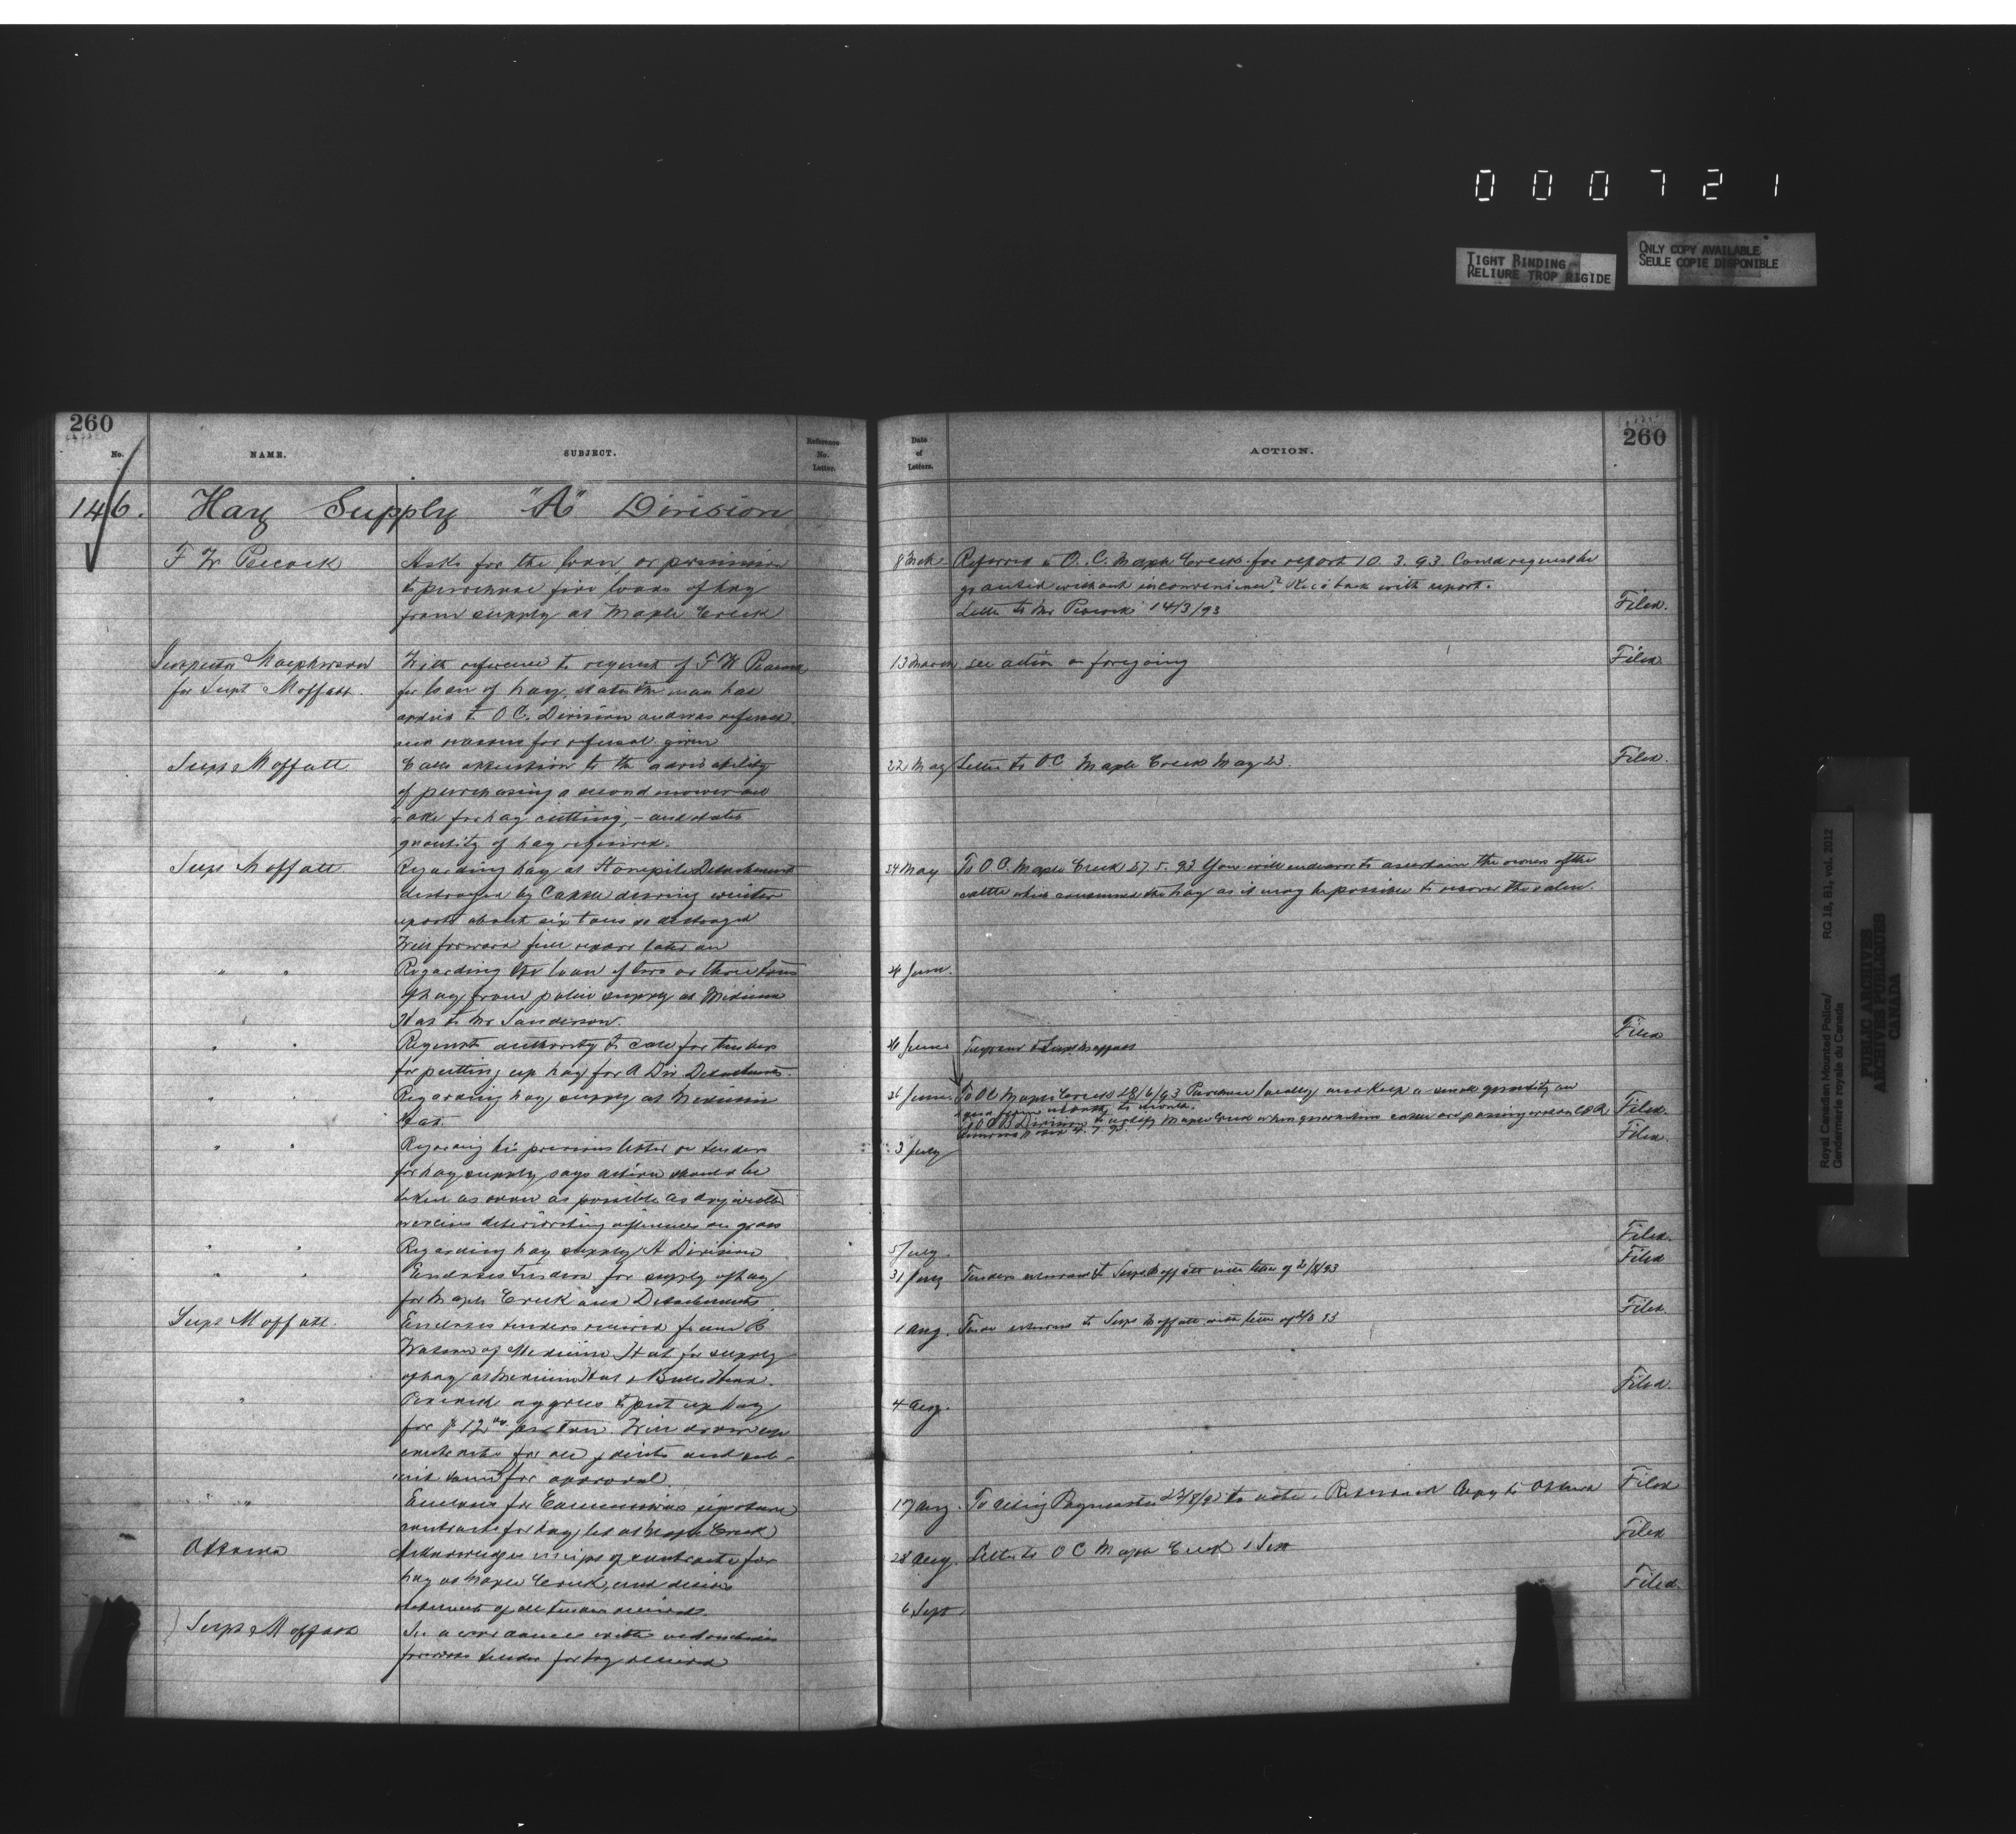 0 0 0 7 2 1
TIGHT BINDING
RELIURE TROP RIGIDE
ONLY COPY AVAILABLE
SEULE COPIE DISPONIBLE
260
No.
NAME.
SUBJECT.
Reference
No.
Letter.
146. Hay Supply "A" Division
F W Peacock
Asks for the loan, or permission
to purchase five loads of hay
from supply at Maple Creek
for Supt Moffatt.
With reference to request of F W Peacock
for loan of hay, states the man has
to O C. Division and was refused
reasons for refusal given
Supt Moffatt
Calls attention to the advisability
of purchasing a second mower and
rake for hay cutting, - and states
quantity of hay required.
Supt Moffatt
Regarding hay at Stonepile Detachment
destroyed by Cattle during winter
reports about six tons so destroyed
Will forward full report later on
" "
Regarding the loan of two or three tons
of hay from police supply at Medicine
Hat to Mr Sanderson.
" "
Request authority to call for tenders
for putting up hay for A Div Detachments.
" "
Regarding hay supply at Medicine
Hat
" "
Regarding his previous letter re tenders
for hay supply, says action should be
taken as soon as possible as dry weather
exercises deteriorating influences on grass
" "
Regarding hay supply A Division
" "
Encloses tenders for supply of hay
for Maple Creek and Detachments
Supt Moffatt.
Encloses tenders received from B
Watson of Medicine Hat for supply
of hay at Medicine Hat & Bulls Head.
"
Peacock agrees to put up hay
for $12 per ton. Will draw up
contracts for all points and sub-
mit same for approval
" "
Encloses for Commissioners signature
contracts for hay let at Maple Creek
Ottawa
Acknowledges receipt of contracts for
hay at Maple Creek, and desires
statement of all tenders received.
Supt Moffatt
In accordance with instructions
forwards tender for hay received
260
Date
of
Letters.
ACTION.
8 Mch Referred to O. C. Maple Creek for report 10. 3. 93. Could request be
granted without inconvenience? Rec'd back with report.
Letter to Mr Peacock 14/3/93 Filed.
13 March see action on foregoing Filed
22 May Letter to O C Maple Creek May 23. Filed.
24 May To O.C. Maple Creek 27. 5. 93 You will endeavour to ascertain the owners of the
cattle which consumed the hay as it may be possible to recover the value.
June.
Filed
June
June. To OC Maple Creek 28/6/93 Purchase locally and keep a small quantity on
from month to month. Filed.
To O C B Division to notify Maple Creek when quarantine cattle are passing over on C.P.R. Filed.
3 July
Filed.
5 July. Filed
31 July Tenders returned to Supt Moffatt with letter of 2/8/93
Filed.
1 Aug. Tender returned to Supt Moffatt with letter of 2/8 93
Filed.
4 Aug.
17 Aug. To Acting Paymaster 23/8/93 to note. Returned Copy to Ottawa Filed
Filed
28 Aug. Letter to O C Maple Creek 1 Sept
Filed.
6 Sept.
Royal Canadian Mounted Police/
Gendarmerie royale du Canada
RG 18, B1, vol. 2012
PUBLIC ARCHIVES
ARCHIVES PUBLIQUES
CANADA